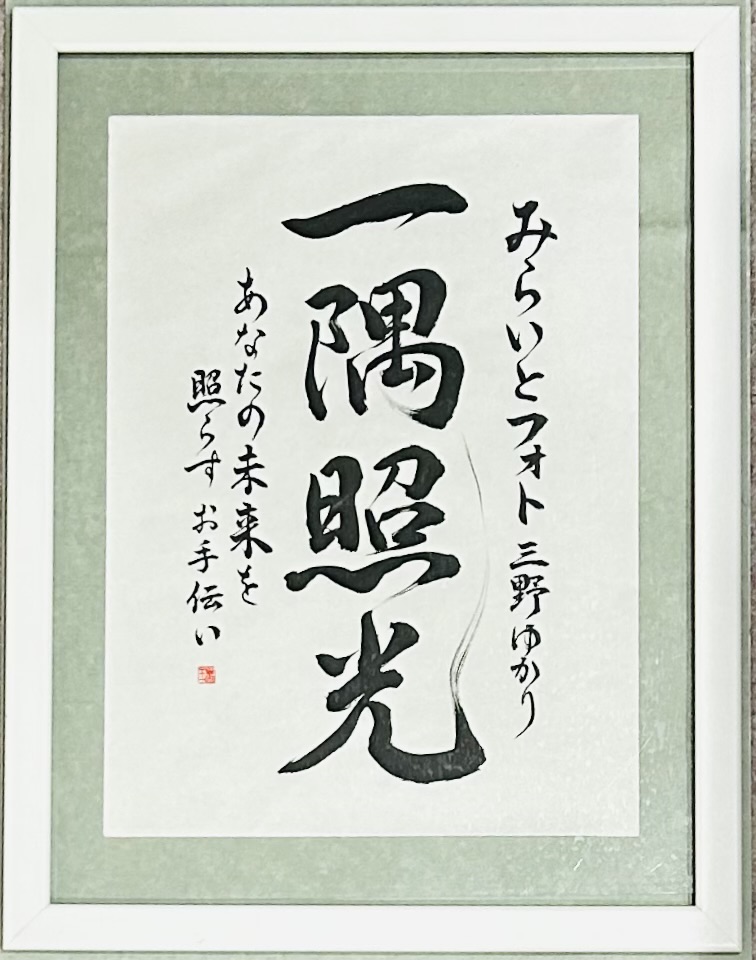 みらいとフォト 三野ゆかり
一隅照光
あなたの未来を
照らす お手伝い